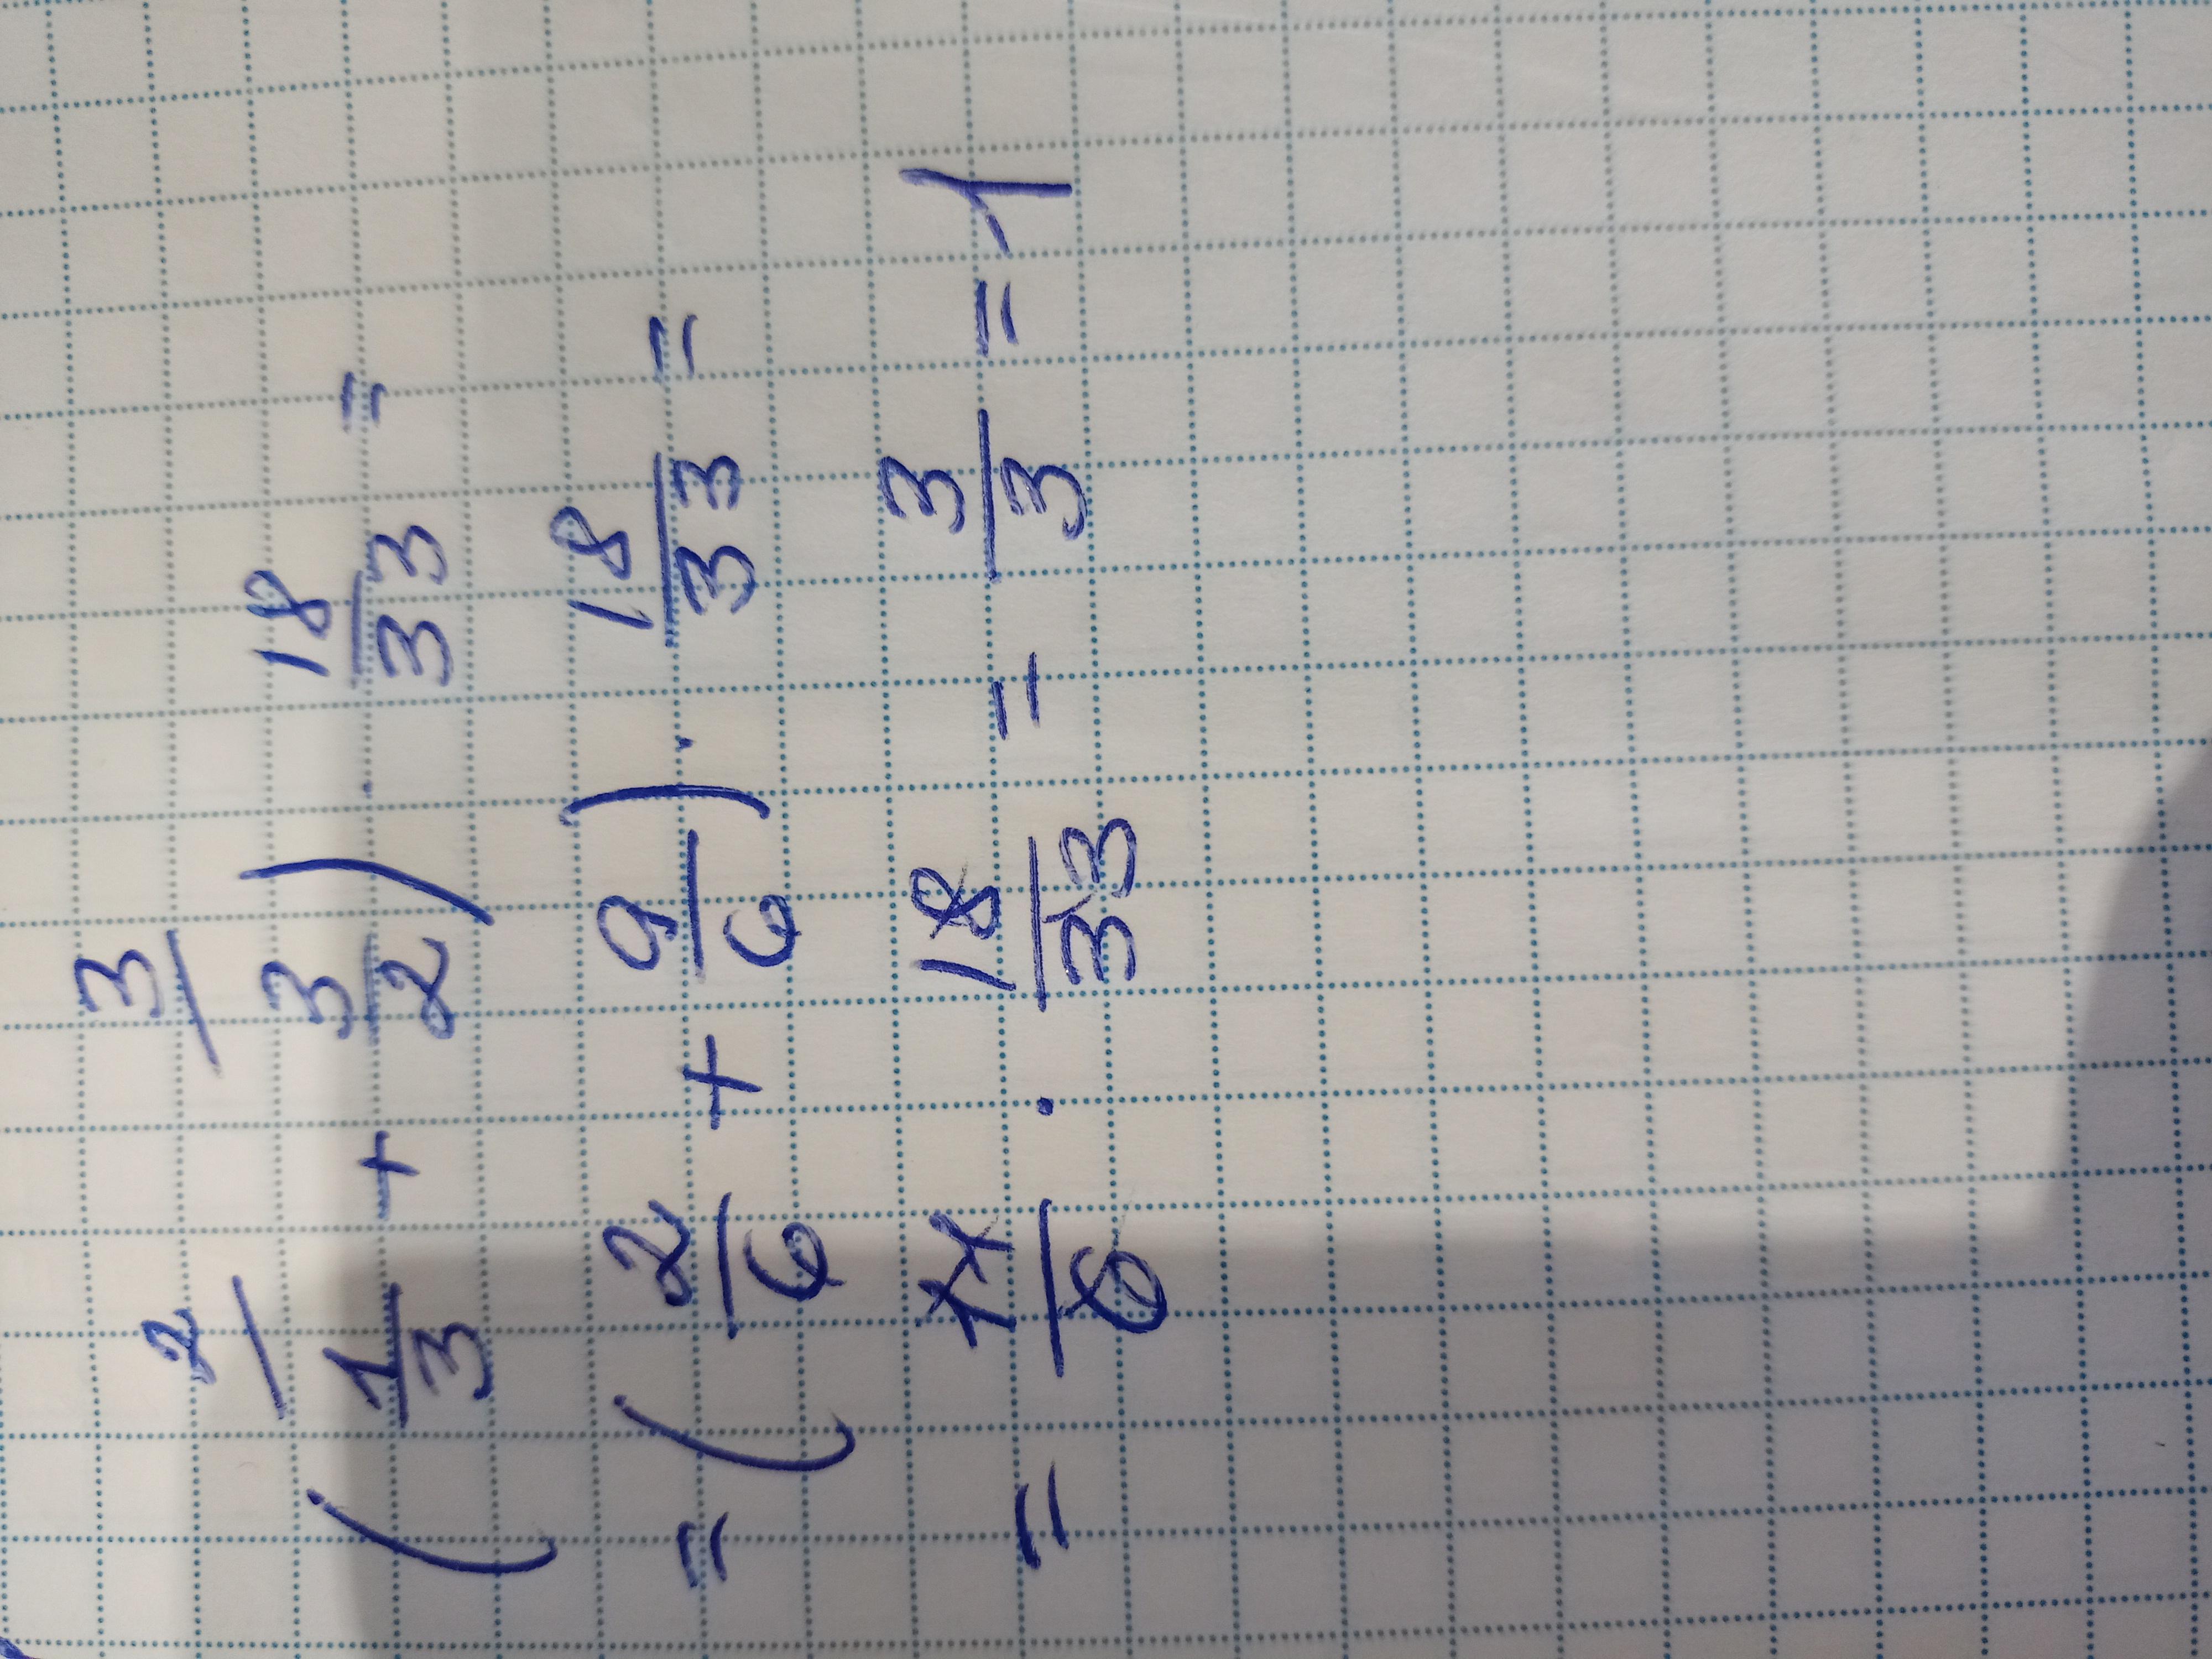 2/ 3/
(1/3 + 3/2) · 18/33 =
= (2/6 + 9/6) · 18/33 =
= 11/6 · 18/33 = 3/3 = 1